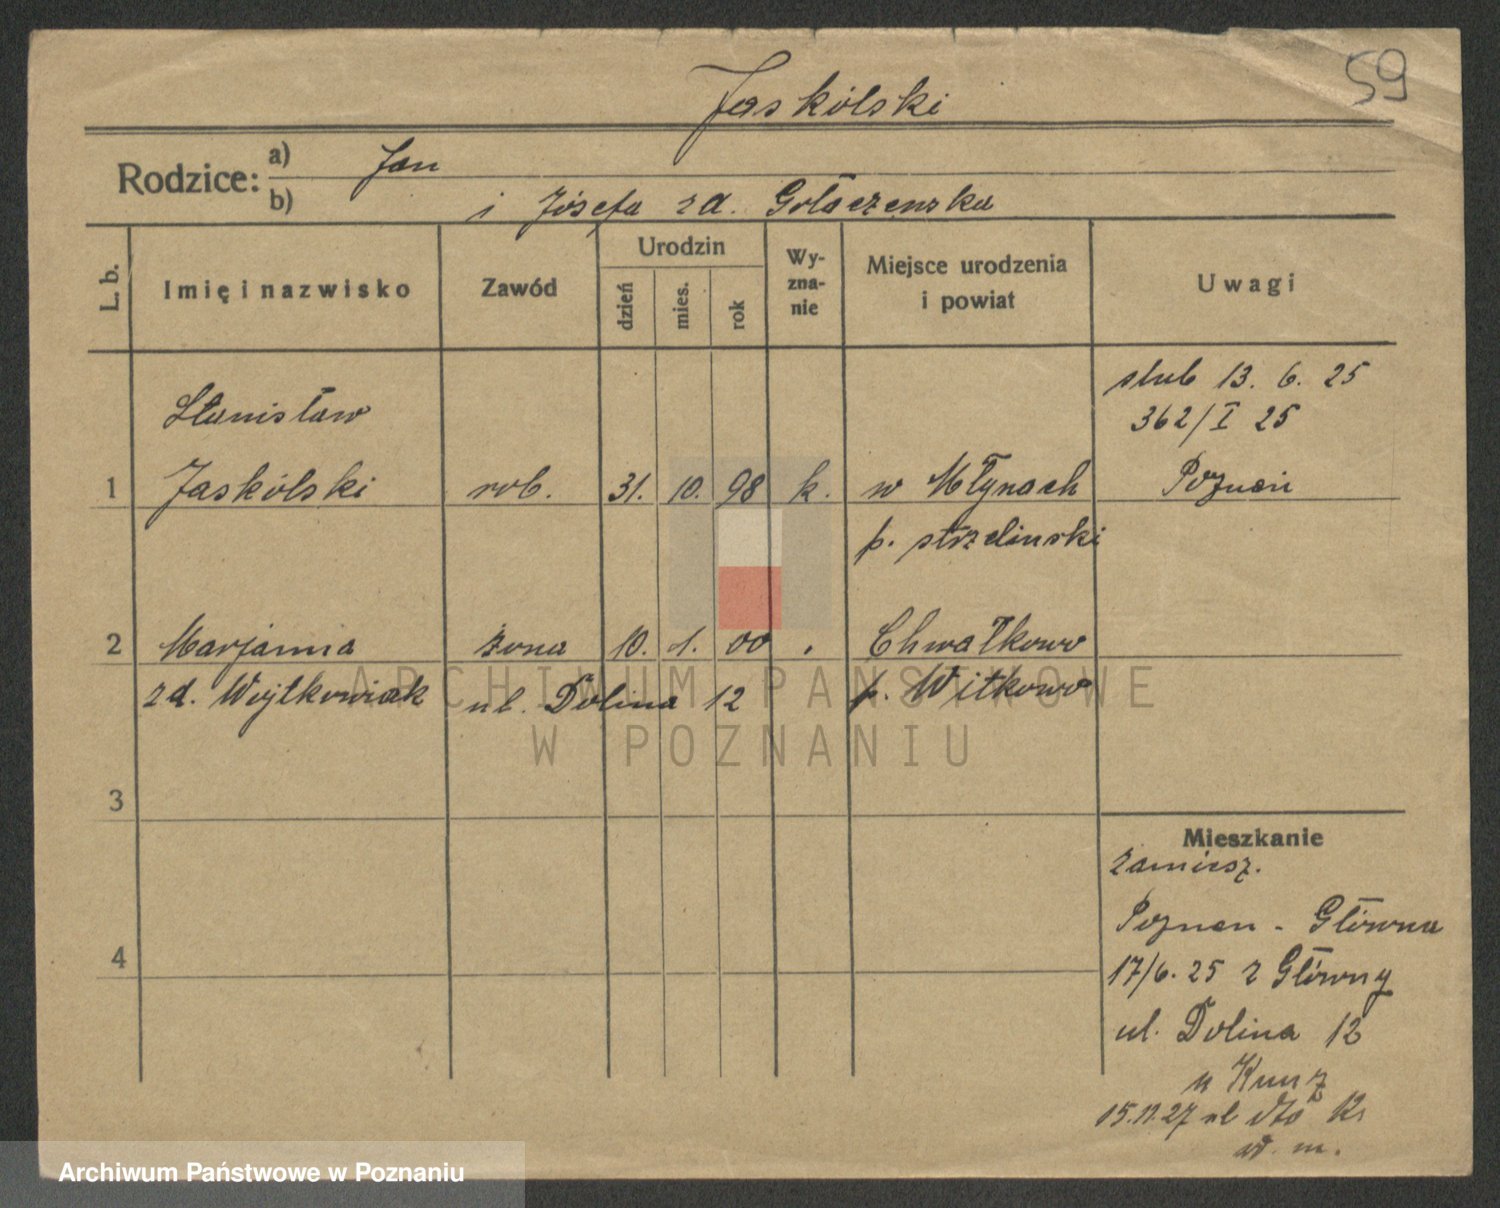 59
Jaskólski
Rodzice: a) Jan
b) i Józefa zd. Gołaczenska
L. b.
Imię i nazwisko
Zawód
Urodzin
dzień
mies.
rok
Wy-
zna-
nie
Miejsce urodzenia
i powiat
Uwagi
ślub 13. 6. 25
362/I 25
Poznań
1
Stanisław
Jaskólski
rob.
31. 10. 98
k.
w Młynach
p. strzelinski
2
Marjanna
zd. Wojtkowiak
żona
10. 1. 00
ul. Dolina 12
Chwałkowo
p. Witkowo
3
4
Mieszkanie
zamiesz.
Poznan - Główna
17/6. 25 z Główny
ul. Dolina 12
u Kunz
15.11.27 ul dto
ARCHIWUM PAŃSTWOWE
W POZNANIU
Archiwum Państwowe w Poznaniu